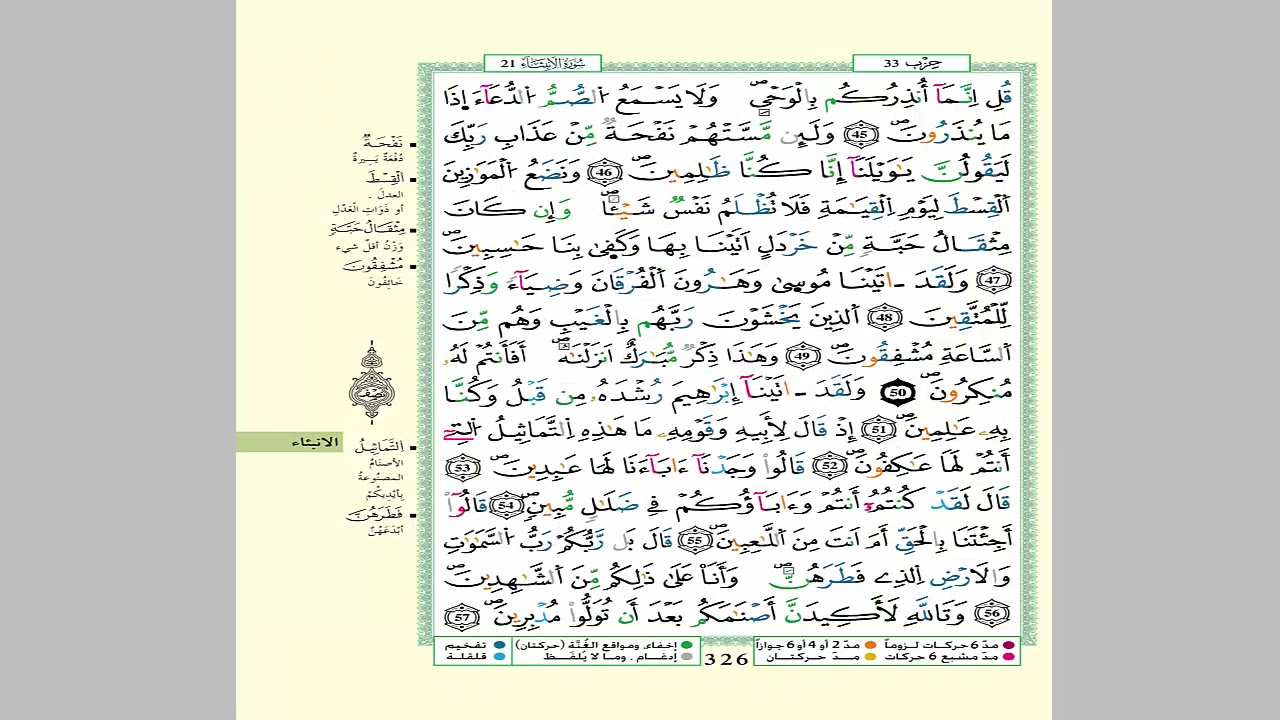 سُورَةُ الأَنبِيَاء 21
حِزْب 33
قُلِ اِنَّمَآ أُنذِرُكُم بِالْوَحْيِ وَلَا يَسْمَعُ الصُّمُّ الدُّعَآءَ اِذَا
مَا يُنذَرُونَ 45 وَلَئِن مَّسَّتْهُمْ نَفْحَةٌ مِّنْ عَذَابِ رَبِّكَ
لَيَقُولُنَّ يَٰوَيْلَنَآ إِنَّا كُنَّا ظَٰلِمِينَ 46 وَنَضَعُ الْمَوَٰزِينَ
اَلْقِسْطَ لِيَوْمِ الْقِيَٰمَةِ فَلَا تُظْلَمُ نَفْسٌ شَيْـٔاً وَإِن كَانَ
مِثْقَالُ حَبَّةٍ مِّنْ خَرْدَلٍ اَتَيْنَا بِهَا وَكَفىٰ بِنَا حَٰسِبِينَ
47 وَلَقَدَ ـ اتَيْنَا مُوسىٰ وَهَٰرُونَ اَلْفُرْقَانَ وَضِيَآءً وَذِكْرًا
لِّلْمُتَّقِينَ 48 اَلذِينَ يَخْشَوْنَ رَبَّهُم بِالْغَيْبِ وَهُم مِّنَ
اَلسَّاعَةِ مُشْفِقُونَ 49 وَهَٰذَا ذِكْرٌ مُّبَٰرَكٌ اَنزَلْنَٰهُ أَفَأَنتُمْ لَهُۥ
مُنكِرُونَ 50 وَلَقَدَ ـ اتَيْنَآ إِبْرَٰهِيمَ رُشْدَهُۥ مِن قَبْلُ وَكُنَّا
بِهِۦ عَٰلِمِينَ 51 إِذْ قَالَ لِأَبِيهِ وَقَوْمِهِۦ مَا هَٰذِهِ اِلتَّمَاثِيلُ اُلتِےٓ
أَنتُمْ لَهَا عَٰكِفُونَ 52 قَالُواْ وَجَدْنَآ ءَابَآءَنَا لَهَا عَٰبِدِينَ 53
قَالَ لَقَدْ كُنتُمُۥٓ أَنتُمْ وَءَابَآؤُكُمْ فِي ضَلَٰلٍ مُّبِينٍ 54 قَالُوٓاْ
أَجِئْتَنَا بِالْحَقِّ أَمَ اَنتَ مِنَ اَللَّٰعِبِينَ 55 قَالَ بَل رَّبُّكُمْ رَبُّ السَّمَٰوَٰتِ
وَالَارْضِ اِلذِے فَطَرَهُنَّ وَأَنَا۠ عَلَىٰ ذَٰلِكُم مِّنَ اَلشَّٰهِدِينَ
56 وَتَاللَّهِ لَأَكِيدَنَّ أَصْنَٰمَكُم بَعْدَ أَن تُوَلُّواْ مُدْبِرِينَ 57
نَفْحَةٌ
دُفْعَةٌ يَسِيرَةٌ
اَلْقِسْطَ
العدل .
أو ذَوَاتِ العَدْلِ
مِثْقَالُ حَبَّةٍ
وَزْنُ أقلّ شيء
مُشْفِقُونَ
خَائِفُونَ
نصف
الانبئاء
اِلتَّمَاثِيلُ
الأصنَامُ
المصنُوعَةُ
بِأَيْدِيكُمْ
فَطَرَهُنَّ
أبْدَعَهُنَّ
مدّ 6 حركات لـزوماً
مدّ 2 أو 4 أو 6 جوازاً
إخفاء، ومواقع الغُنَّة (حركتان)
تفخيم
مدّ مشبع 6 حركات
مــدّ حركتــان
إدغـام ، ومـا لا يُلفَـظ
قلقلة
326